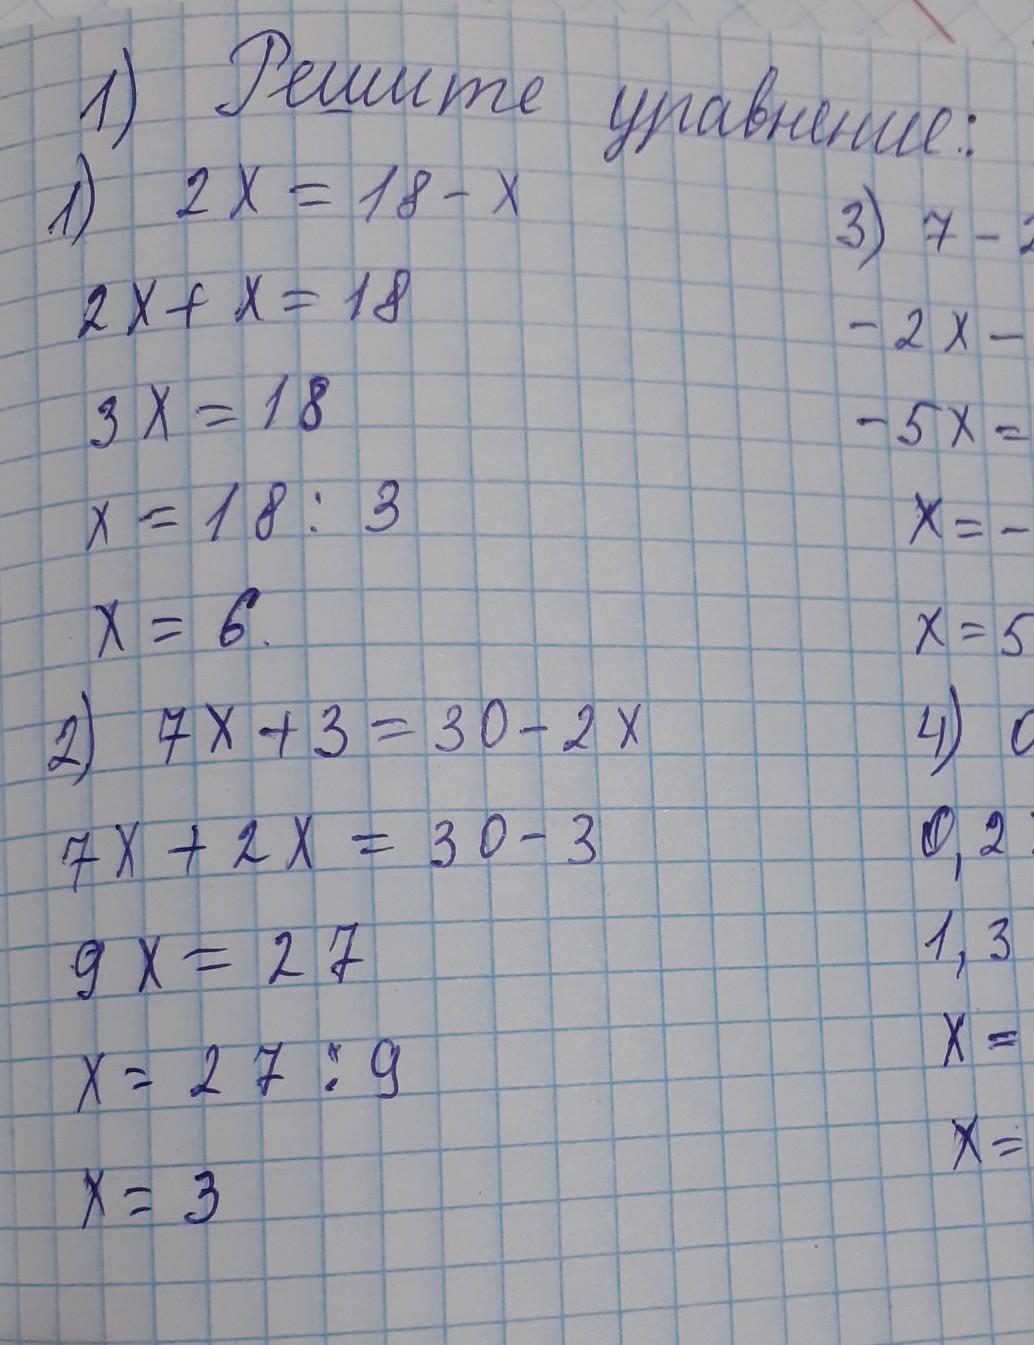 1) Решите уравнение:
1) 2x = 18 - x
2x + x = 18
3x = 18
x = 18 : 3
x = 6.
2) 7x + 3 = 30 - 2x
7x + 2x = 30 - 3
9x = 27
x = 27 : 9
x = 3
3) 7 -
- 2x -
- 5x =
x = -
x = 5
4)
0,2
1,3
x =
x =